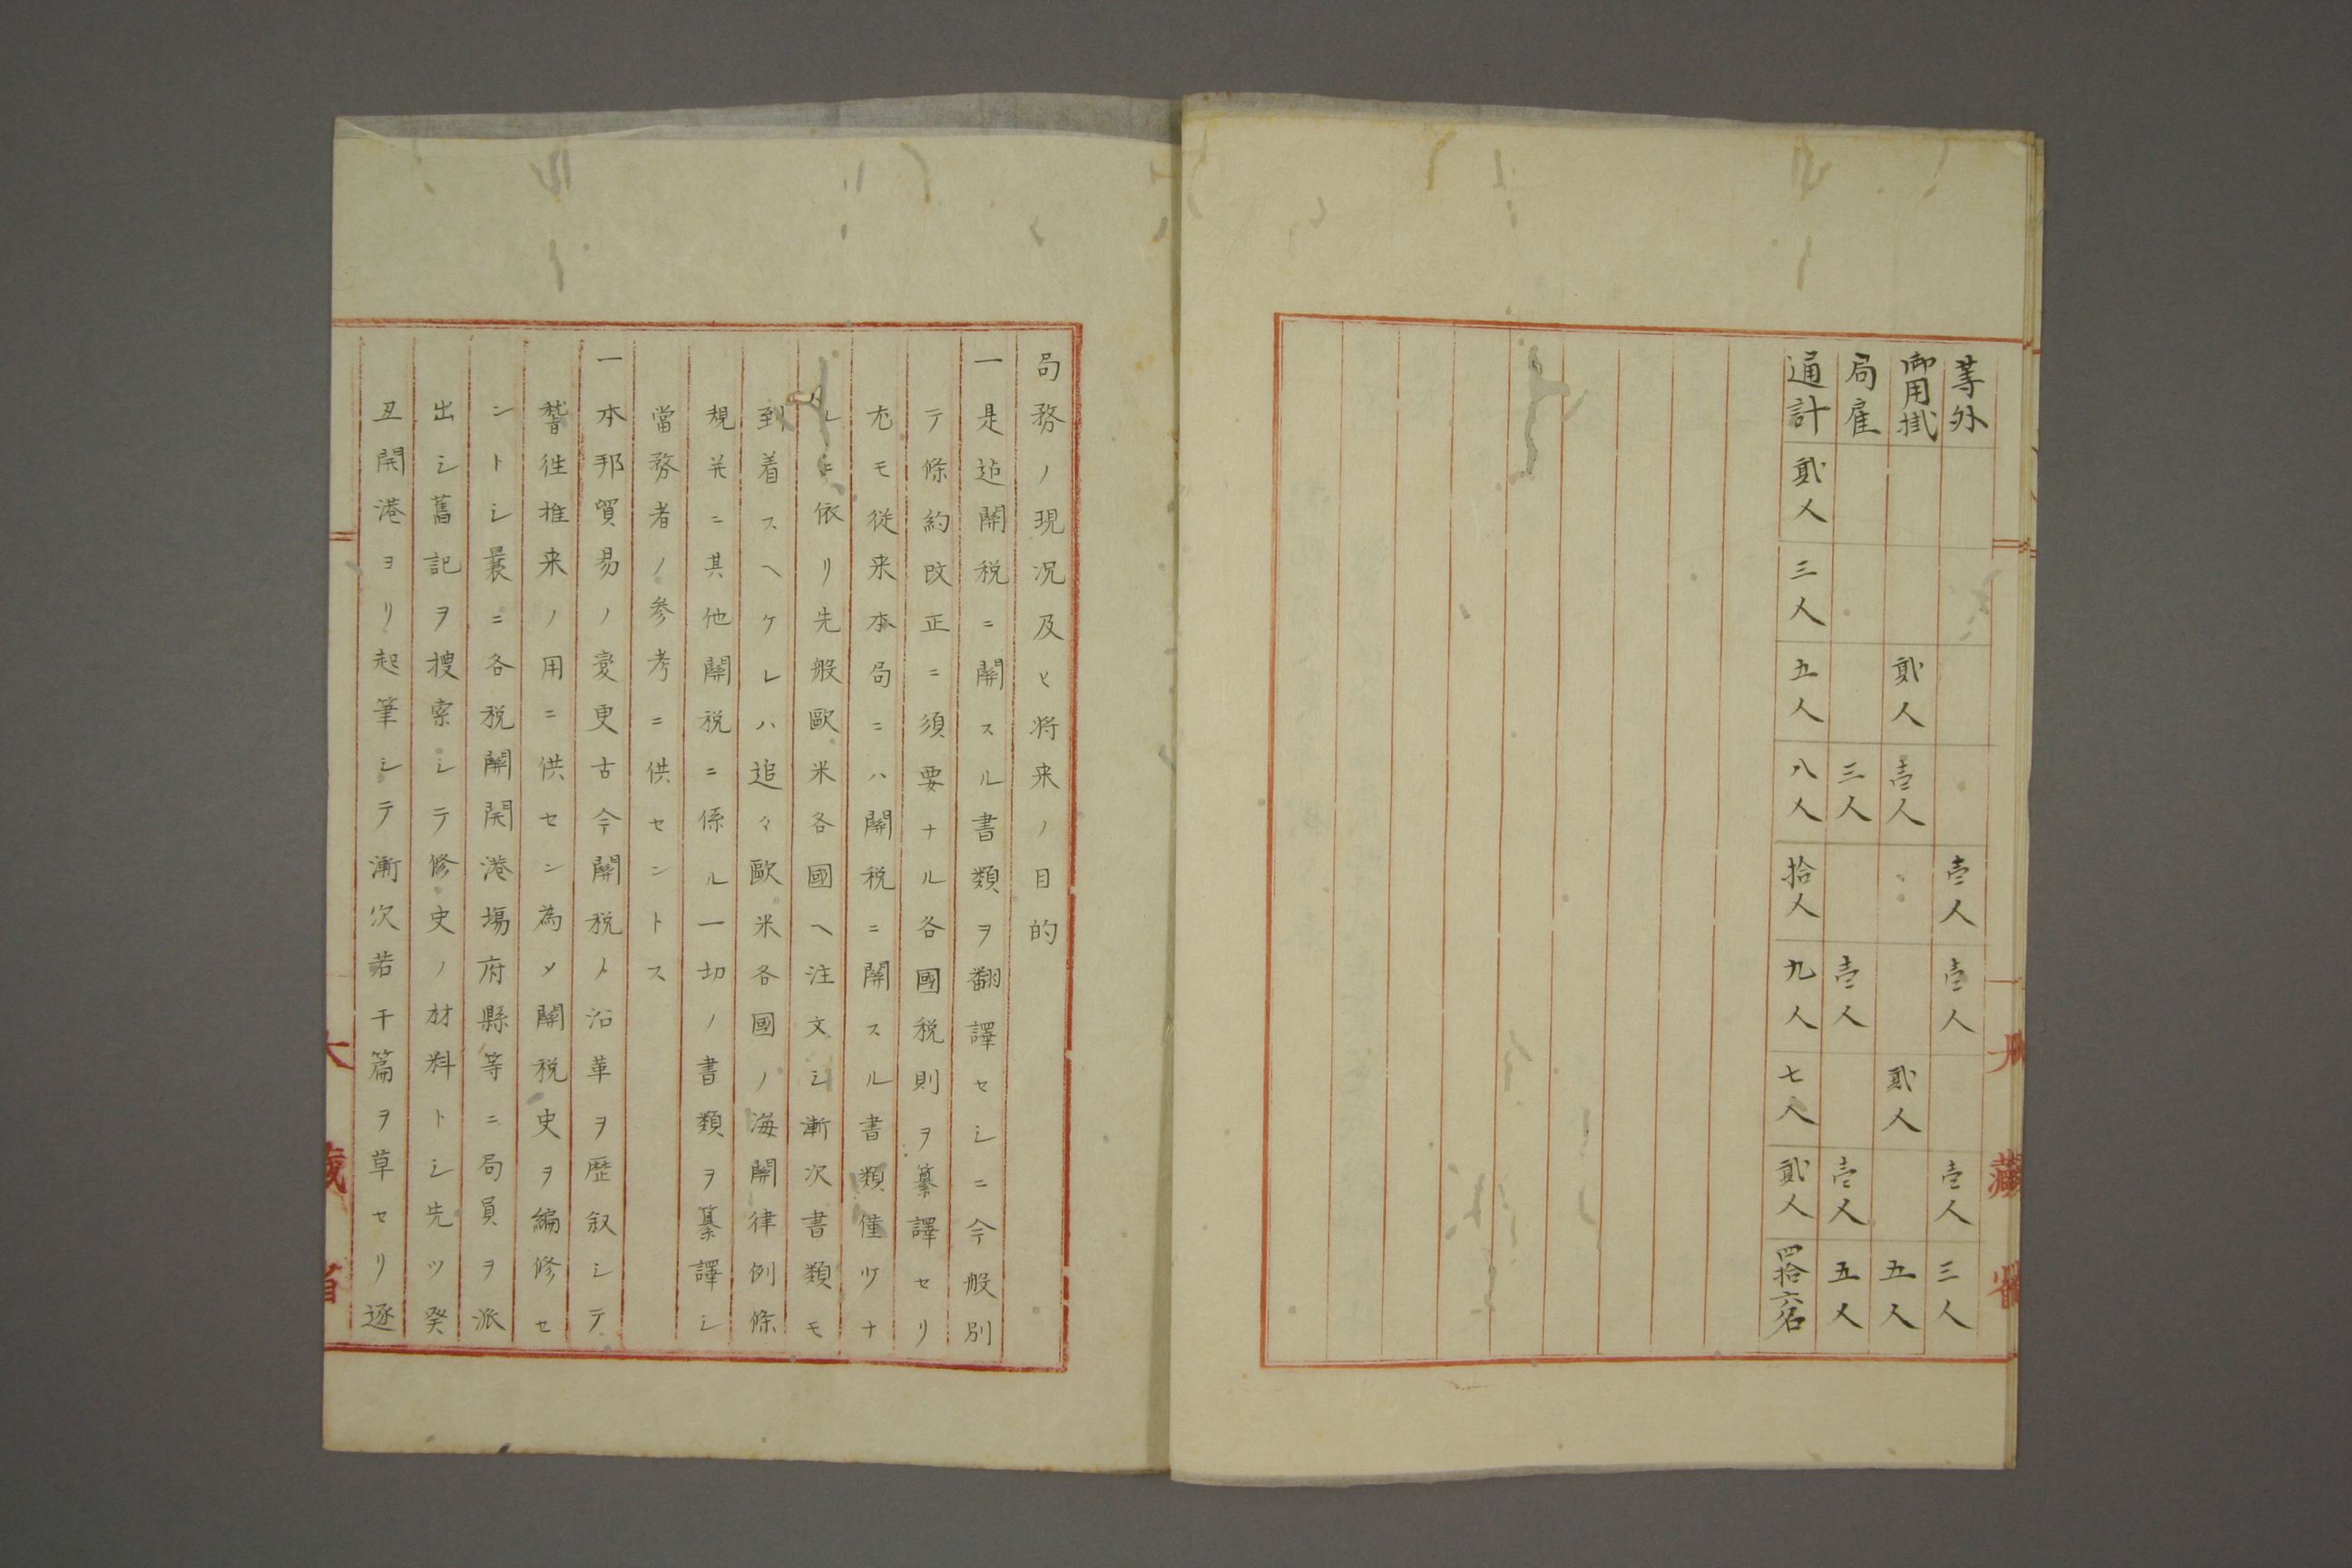 等外 壱人 壱人 壱人 三人
御用掛 貳人 壱人 貳人 五人
局雇 三人 壱人 壱人 五人
通計 貳人 三人 五人 八人 拾人 九人 七人 貳人 四拾六名
大藏省
局務ノ現況及ヒ将来ノ目的
一是迠關税ニ關スル書類ヲ翻譯セシニ今般別
テ條約改正ニ須要ナル各國税則ヲ纂譯セリ
尤モ従来本局ニハ關税ニ關スル書類僅少ナ
ルニ依リ先般歐米各國ヘ注文シ漸次書類モ
到着スヘケレハ追々歐米各國ノ海關律例條
規并ニ其他關税ニ係ル一切ノ書類ヲ纂譯シ
當務者ノ参考ニ供センドス
一本邦貿易ノ變更古今關税ノ沿革ヲ歴叙シテ
稽徃推来ノ用ニ供セン為メ關税史ヲ編修セ
ントシ曩ニ各税關開港場府縣等ニ局員ヲ派
出シ舊記ヲ搜索シテ修史ノ材料トシ先ツ癸
丑開港ヨリ起筆シテ漸次若干篇ヲ草セリ逐
大藏省